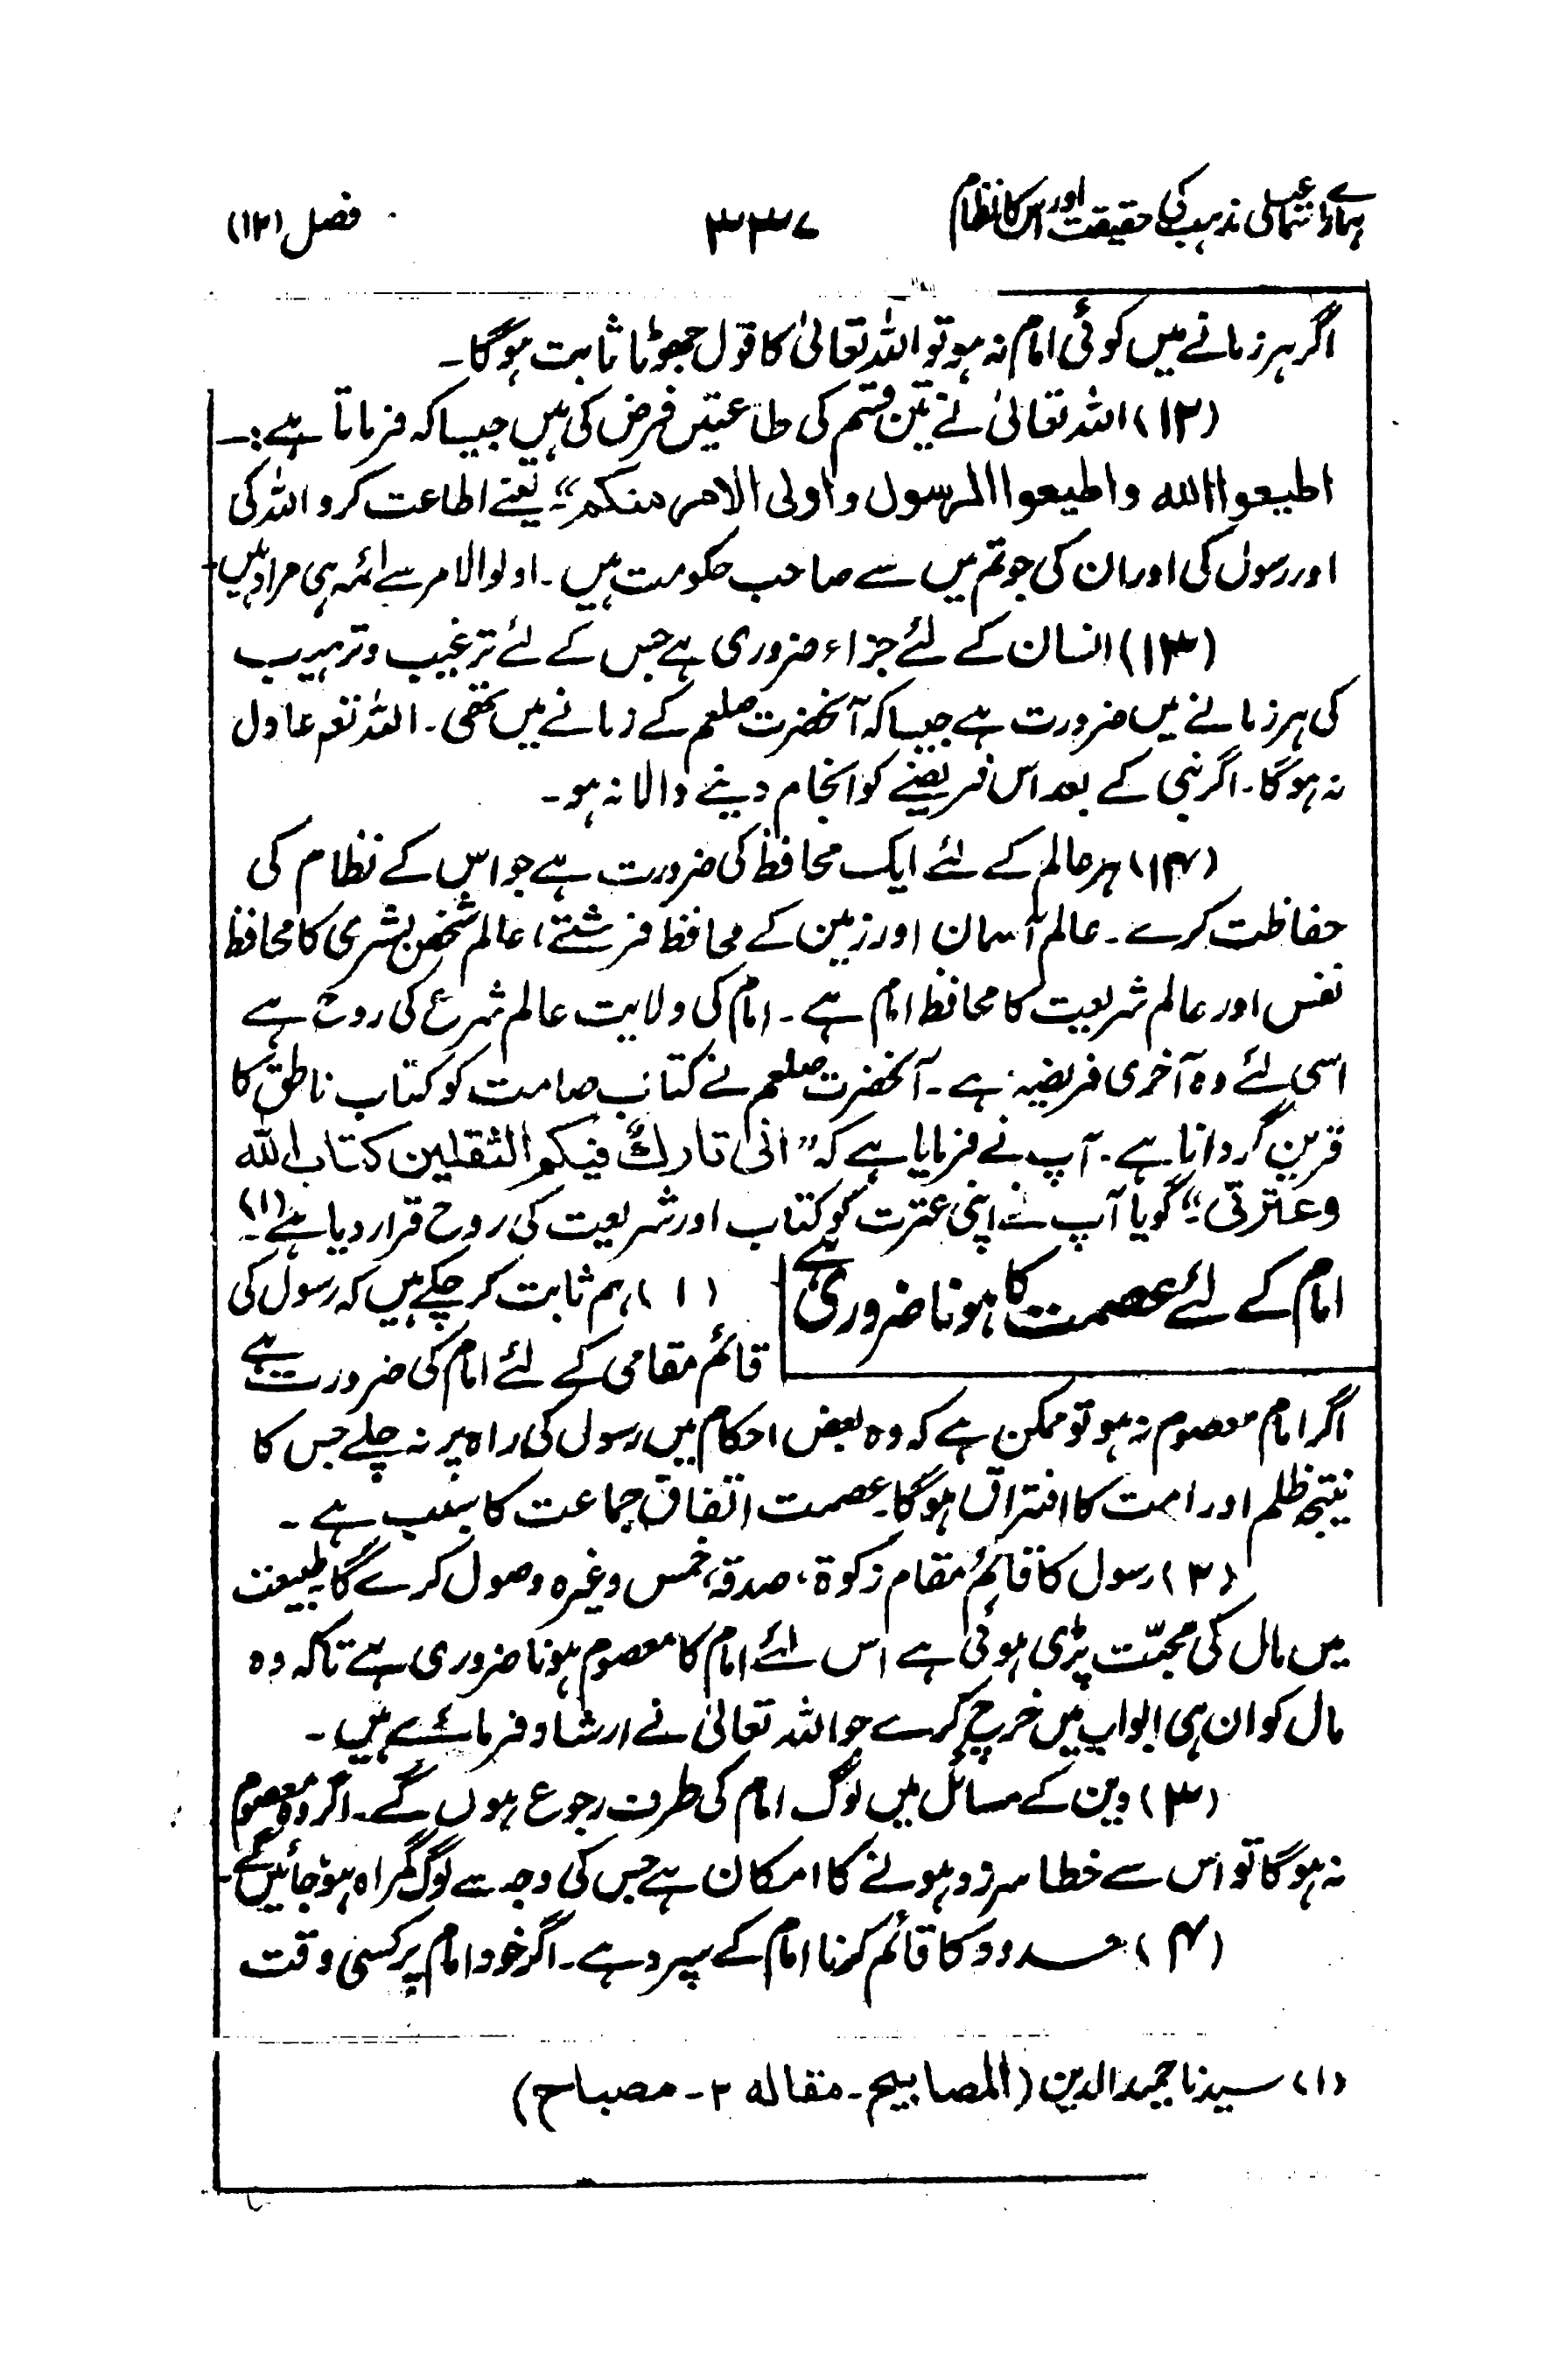 ہمارے اسماعیلی مذہب کی حقیقت اور اس کا نظام ۳۳۷ فصل (۱۲)
اگر ہر زمانے میں کوئی امام نہ ہو تو اللہ تعالیٰ کا قول جھوٹا ثابت ہوگا۔
(۱۲) اللہ تعالیٰ نے تین قسم کی طاعتیں فرض کی ہیں جیسا کہ فرماتا ہے :۔
اطیعوا اللہ واطیعوا الرسول واولی الامر منکم“۔ یعنے اطاعت کرو اللہ کی
اور رسول کی اور ان کی جو تم میں سے صاحب حکومت ہیں۔ اولوالامر سے ائمہ ہی مراد ہیں۔
(۱۳) انسان کے لئے جزاء ضروری ہے جس کے لئے ترغیب و ترہیب
کی ہر زمانے میں ضرورت ہے جیسا کہ آنحضرت صلعم کے زمانے میں تھی۔ اللہ تعم عادل
نہ ہوگا۔ اگر نبی کے بعد اس فریضے کو انجام دینے والا نہ ہو۔
(۱۴) ہر عالم کے لئے ایک محافظ کی ضرورت ہے جو اس کے نظام کی
حفاظت کرے۔ عالم آسمان اور زمین کے محافظ فرشتے، عالم شخص بشری کا محافظ
نفس اور عالم شریعت کا محافظ امام ہے۔ امام کی ولایت عالم شرع کی روح ہے
اسی لئے وہ آخری فریضہ ہے۔ آنحضرت صلعم نے کتاب صامت کو کتاب ناطق کا
قرین گردانا ہے۔ آپ نے فرمایا ہے کہ ”انی تارک فیکم الثقلین کتاب اللہ
وعترتی“۔ گویا آپ نے اپنی عترت کو کتاب اور شریعت کی روح قرار دیا ہے (۱)۔
امام کے لئے عصمت کا ہونا ضروری ہے
(۱) ہم ثابت کرچکے ہیں کہ رسول کی
قائم مقامی کے لئے امام کی ضرورت ہے
اگر امام معصوم نہ ہو تو ممکن ہے کہ وہ بعض احکام میں رسول کی راہ پر نہ چلے جس کا
نتیجہ ظلم اور امت کا افتراق ہوگا۔ عصمت اتفاق جماعت کا سبب ہے۔
(۲) رسول کا قائم مقام زکوۃ، صدقہ، خمس وغیرہ وصول کرے گا۔ طبیعت
میں مال کی محبّت پڑی ہوئی ہے اس لئے امام کا معصوم ہونا ضروری ہے تاکہ وہ
مال کو ان ہی ابواب میں خرچ کرے جو اللہ تعالیٰ نے ارشاد فرمائے ہیں۔
(۳) دین کے مسائل میں لوگ امام کی طرف رجوع ہوں گے۔ اگر وہ معصوم
نہ ہوگا تو اس سے خطا سرزد ہونے کا امکان ہے جس کی وجہ سے لوگ گمراہ ہوجائیں گے۔
(۴) حدود کا قائم کرنا امام کے سپرد ہے۔ اگر خود امام پر کسی وقت
(۱) سیدنا حمید الدین (المصابیح۔ مقالہ ۲۔ مصباح)